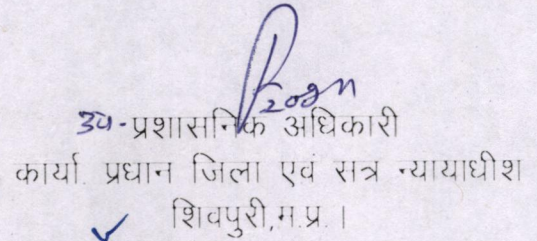 उप-प्रशासनिक अधिकारी
कार्या. प्रधान जिला एवं सत्र न्यायाधीश
शिवपुरी,म.प्र. ।